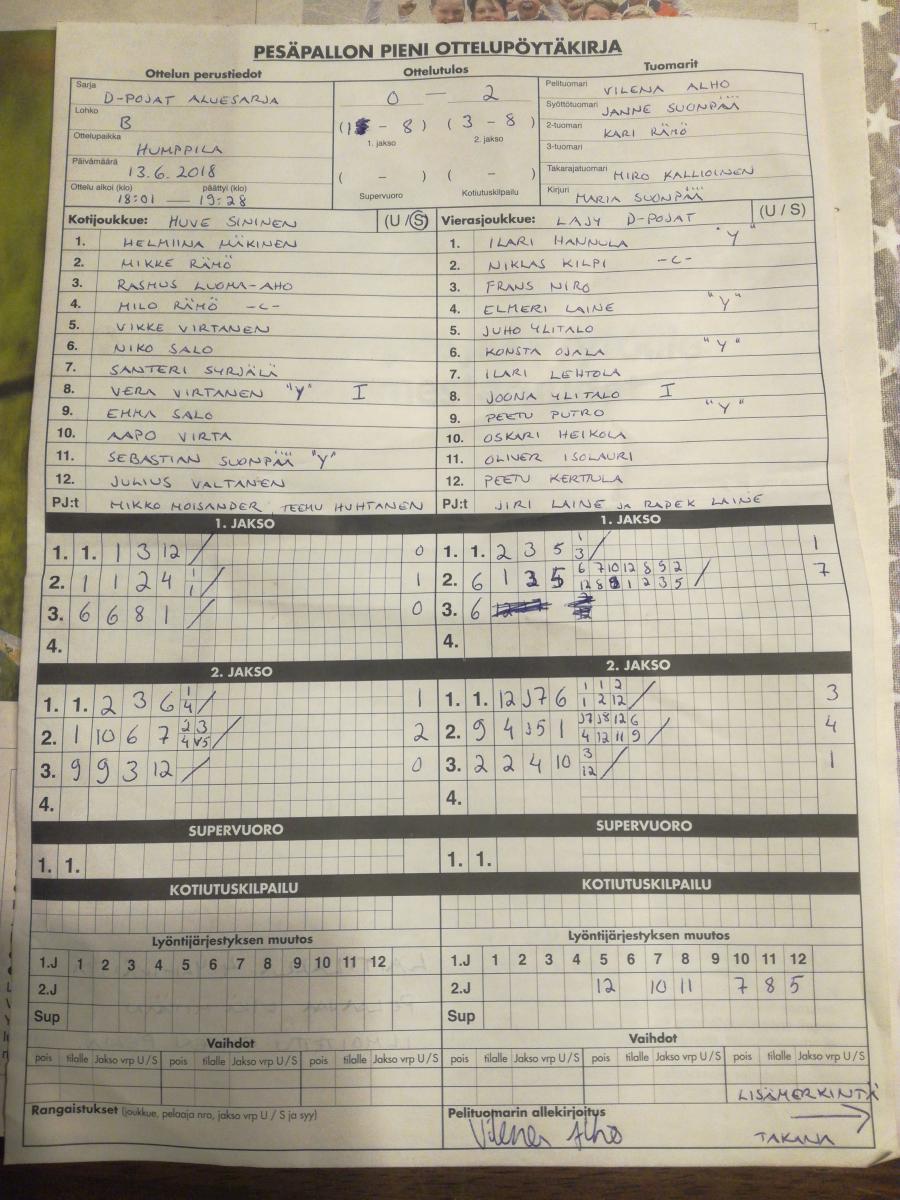 PESÄPALLON PIENI OTTELUPÖYTÄKIRJA
Ottelun perustiedot Ottelutulos Tuomarit
Sarja D-POJAT ALUESARJA
Lohko B
Ottelupaikka HUMPPILA
Päivämäärä 13.6.2018
Ottelu alkoi (klo) päättyi (klo)
18:01 — 19:28
0 — 2
(1 - 8) (3 - 8)
1. jakso 2. jakso
( - ) ( - )
Supervuoro Kotiutuskilpailu
Pelituomari VILENA ALHO
Syöttötuomari JANNE SUONPÄÄ
2-tuomari KARI RÄMÖ
3-tuomari
Takarajatuomari MIRO KALLIOINEN
Kirjuri MARIA SUONPÄÄ
Kotijoukkue: HUVE SININEN (U / S)
1. HELMIINA MÄKINEN
2. MIKKE RÄMÖ
3. RASMUS LUOMA-AHO
4. MILO RÄMÖ -C-
5. VIKKE VIRTANEN
6. NIKO SALO
7. SANTERI SYRJÄLÄ
8. VERA VIRTANEN "Y" I
9. EMMA SALO
10. AAPO VIRTA
11. SEBASTIAN SUONPÄÄ "Y"
12. JULIUS VALTANEN
PJ:t MIKKO MOISANDER, TEEMU HUHTANEN
Vierasjoukkue: LAJY D-POJAT (U / S)
1. ILARI HANNULA "Y"
2. NIKLAS KILPI -C-
3. FRANS NIRO
4. ELMERI LAINE "Y"
5. JUHO YLITALO
6. KONSTA OJALA "Y"
7. ILARI LEHTOLA
8. JOONA YLITALO I
9. PEETU PUTRO "Y"
10. OSKARI HEIKOLA
11. OLIVER ISOLAURI
12. PEETU KERTTULA
PJ:t JIRI LAINE JA RADEK LAINE
1. JAKSO
1. 1. 1 3 12 / 0
2. 1 1 2 4 1/1 / 1
3. 6 6 8 1 / 0
4.
1. JAKSO
1. 1. 2 3 5 1/3 / 1
2. 6 1 3 5 6 7 10 12 8 5 2 / 7
12 8 1 2 3 5
3. 6
4.
2. JAKSO
1. 1. 2 3 6 1/4 / 1
2. 1 10 6 7 2 3 / 2
4 V5
3. 9 9 3 12 / 0
4.
2. JAKSO
1. 1. 12 J7 6 1 1 2 / 3
1 2 12
2. 9 4 J5 1 J7 J8 12 6 / 4
4 12 11 9
3. 2 2 4 10 3/12 / 1
4.
SUPERVUORO SUPERVUORO
1. 1. 1. 1.
KOTIUTUSKILPAILU KOTIUTUSKILPAILU
Lyöntijärjestyksen muutos
1.J 1 2 3 4 5 6 7 8 9 10 11 12
2.J
Sup
Lyöntijärjestyksen muutos
1.J 1 2 3 4 5 6 7 8 9 10 11 12
2.J 12 10 11 7 8 5
Sup
Vaihdot
pois tilalle Jakso vrp U / S pois tilalle Jakso vrp U / S pois tilalle Jakso vrp U / S
Vaihdot
pois tilalle Jakso vrp U / S pois tilalle Jakso vrp U / S pois tilalle Jakso vrp U / S
LISÄMERKINTÄ
TAKANA
Rangaistukset (joukkue, pelaaja nro, jakso vrp U / S ja syy)
Pelituomarin allekirjoitus
Vilena Alho